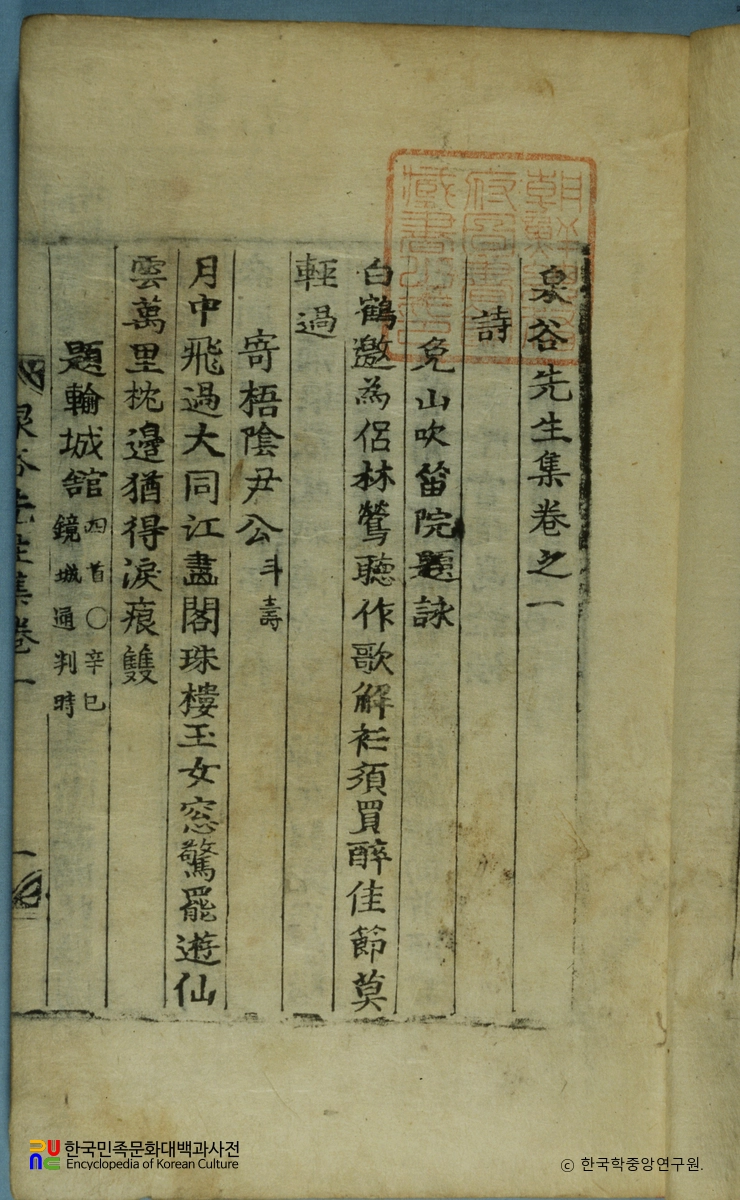 朝鮮
府圖書
藏書
泉谷先生集卷之一
詩
免山吹笛院題詠
白鶴邀為侶林鶯聽作歌解衫須買醉佳節莫
輕過
寄梧陰尹公斗壽
月中飛過大同江畵閣珠樓玉女窓驚罷遊仙
雲萬里枕邊猶得淚痕雙
題輸城舘四首○辛巳鏡城通判時
泉谷先生集卷一
一
한국민족문화대백과사전
Encyclopedia of Korean Culture
© 한국학중앙연구원.